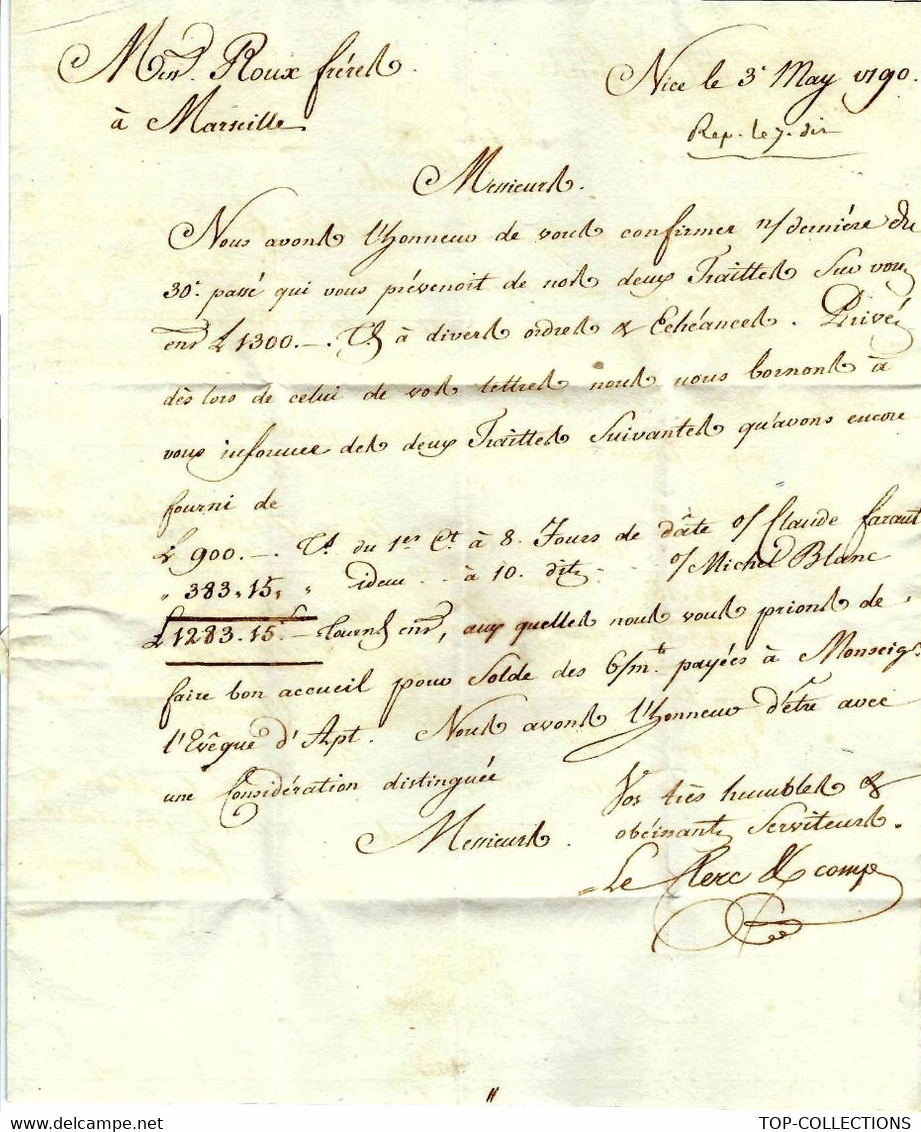 Mess.rs Roux fréres
à Marseille
Nice le 3.e May 1790.
Rep. le 7. dit
Messieurs.
Nous avons l'honneur de vous confirmer n/ derniére du
30.e passé qui vous prévenoit de nos deux Traittes sur vous
ens. £ 1300. —. Ts. à divers ordres & Echéances. Privés
dès lors de celui de vos lettres nous nous bornons à
vous informer des deux Traittes suivantes qu'avons encore
fourni de
£ 900. —. Ts. du 1.er Ct. à 8. Jours de dâte o/ Claude faraut
" 383. 15. " idem .. à 10. dits .. o/ Michel Blanc
£ 1283. 15.s — Tourns. ens., aux quelles nous vous prions de
faire bon accueil pour Solde des 6/m.ts payées à Monseigr.
l'Evêque d'Apt. Nous avons l'honneur d'être avec
une Considération distinguée
Messieurs.
Vos très humbles &
obéissants Serviteurs.
Le Clerc & comp.e
TOP-COLLECTIONS